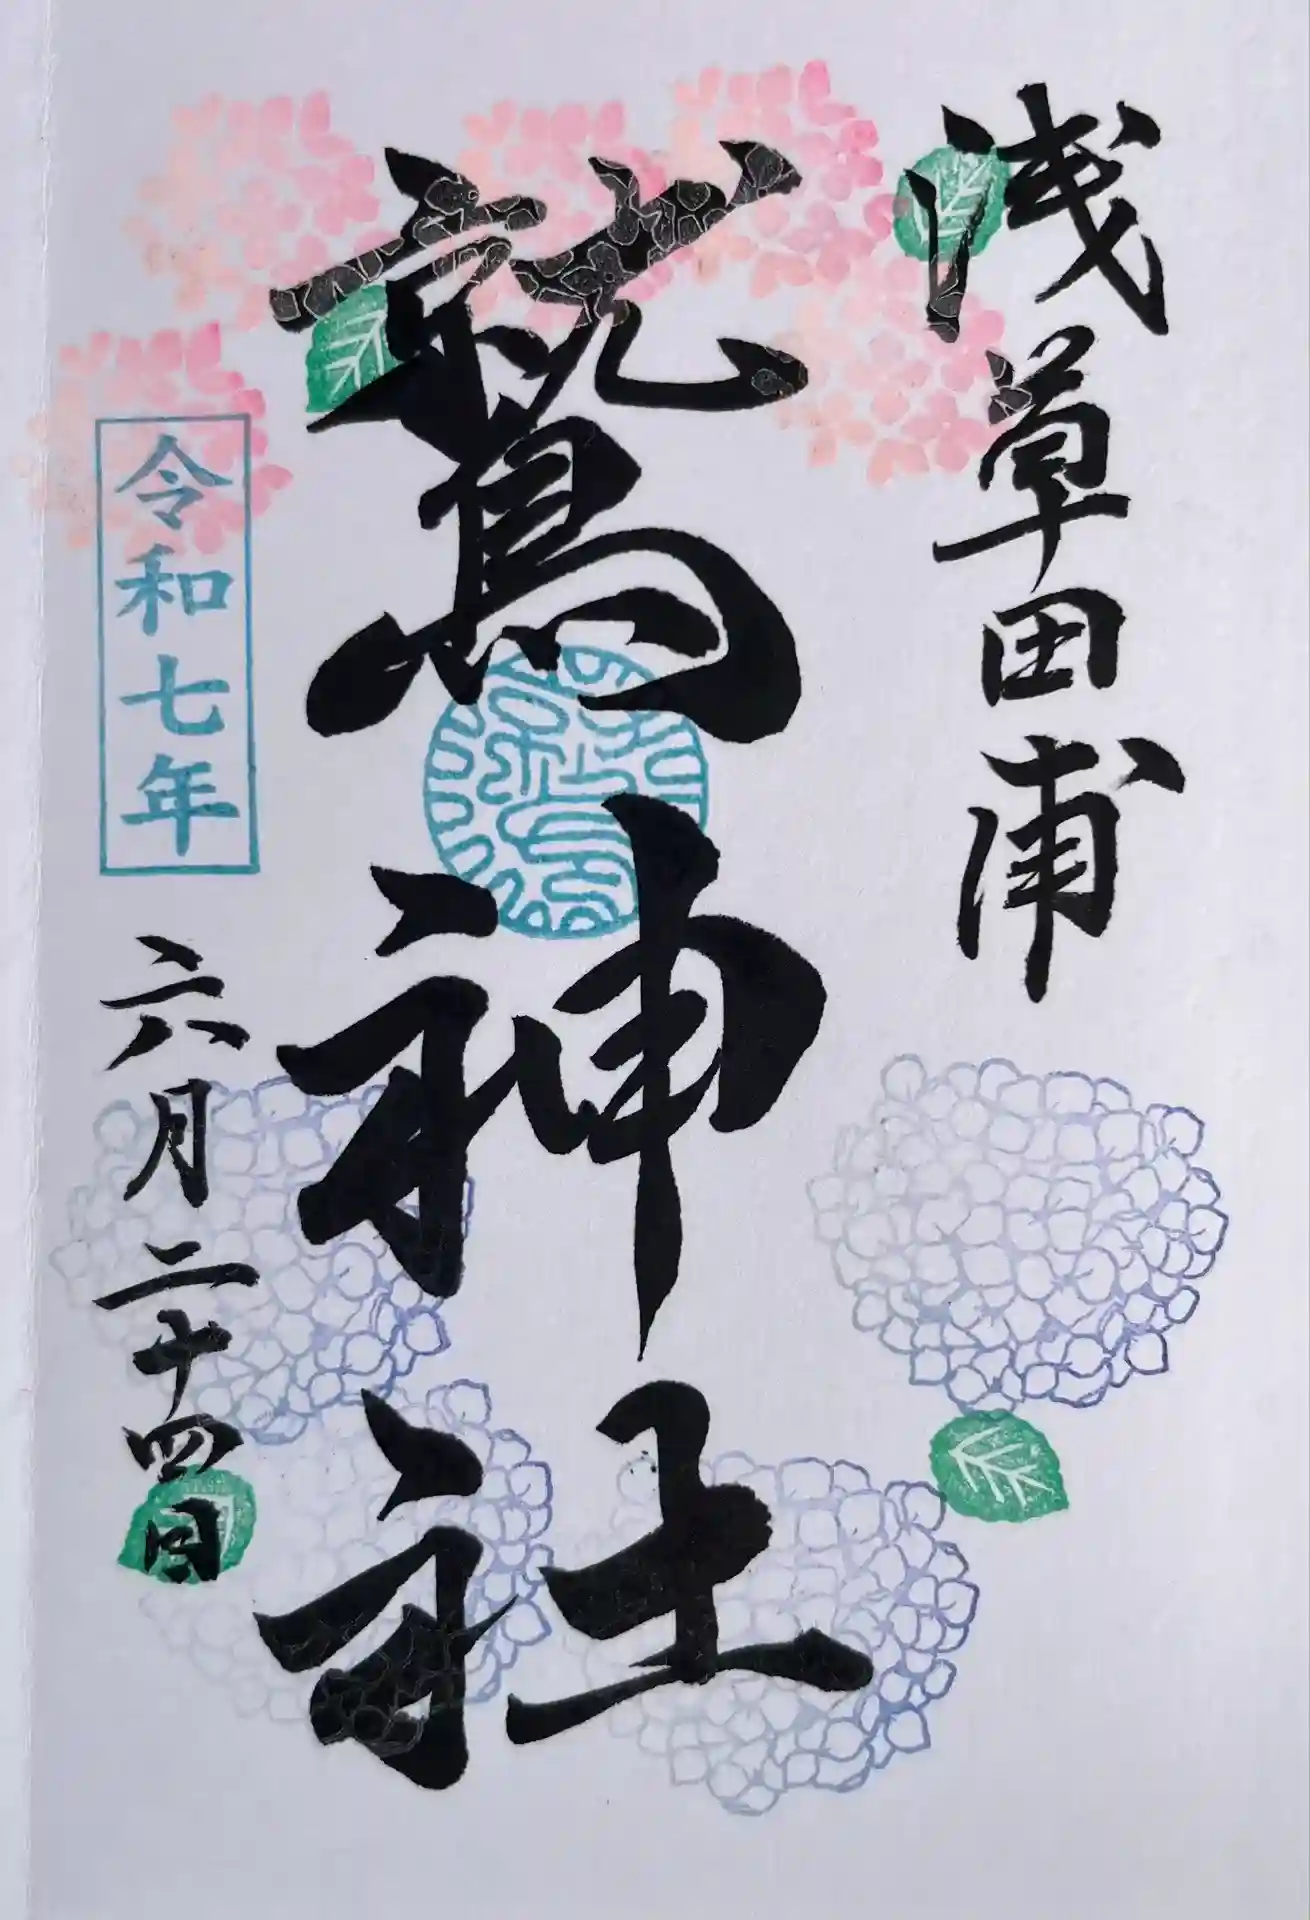 浅草田圃
鷲神社
令和七年
六月二十四日